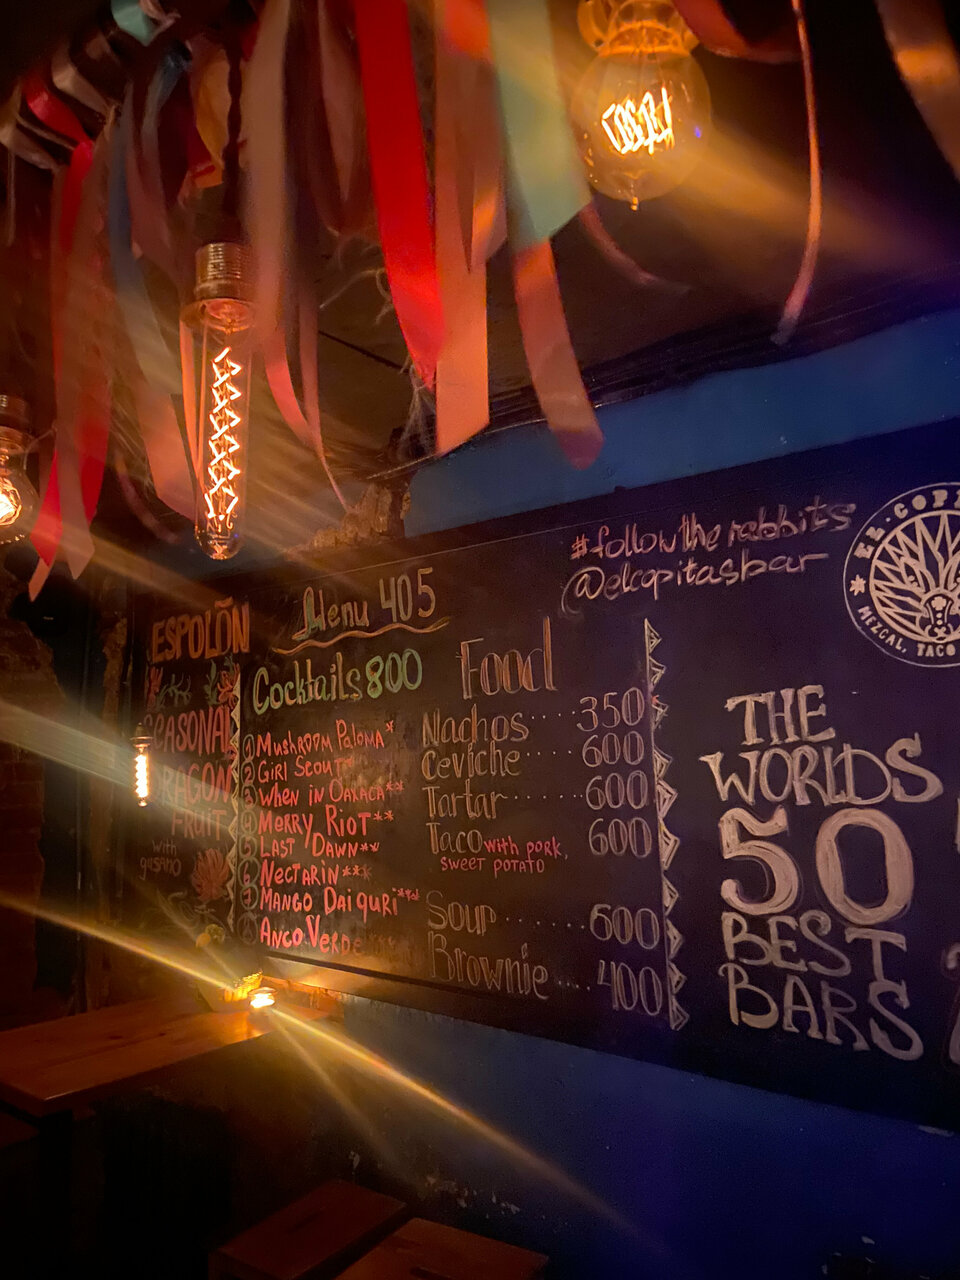 #followtherabbits
@elcopitasbar
EL COP
MEZCAL, TACO
ESPOLÕN
SEASONAL
DRAGON
FRUIT
with
gusano
Menu 405
Cocktails 800
1 MUSHROOM PALOMA*
2 GIRL SCOUT
3 WHEN IN OAXACA**
4 MERRY RIOT**
5 LAST DAWN**
6 NECTARIN***
7 MANGO DAIQURI***
8 ANCO VERDE
Food
Nachos ..... 350
Ceviche ..... 600
Tartar ..... 600
Taco with pork, 600
sweet potato
Soup ..... 600
Brownie ... 400
THE
WORLDS
50
BEST
BARS